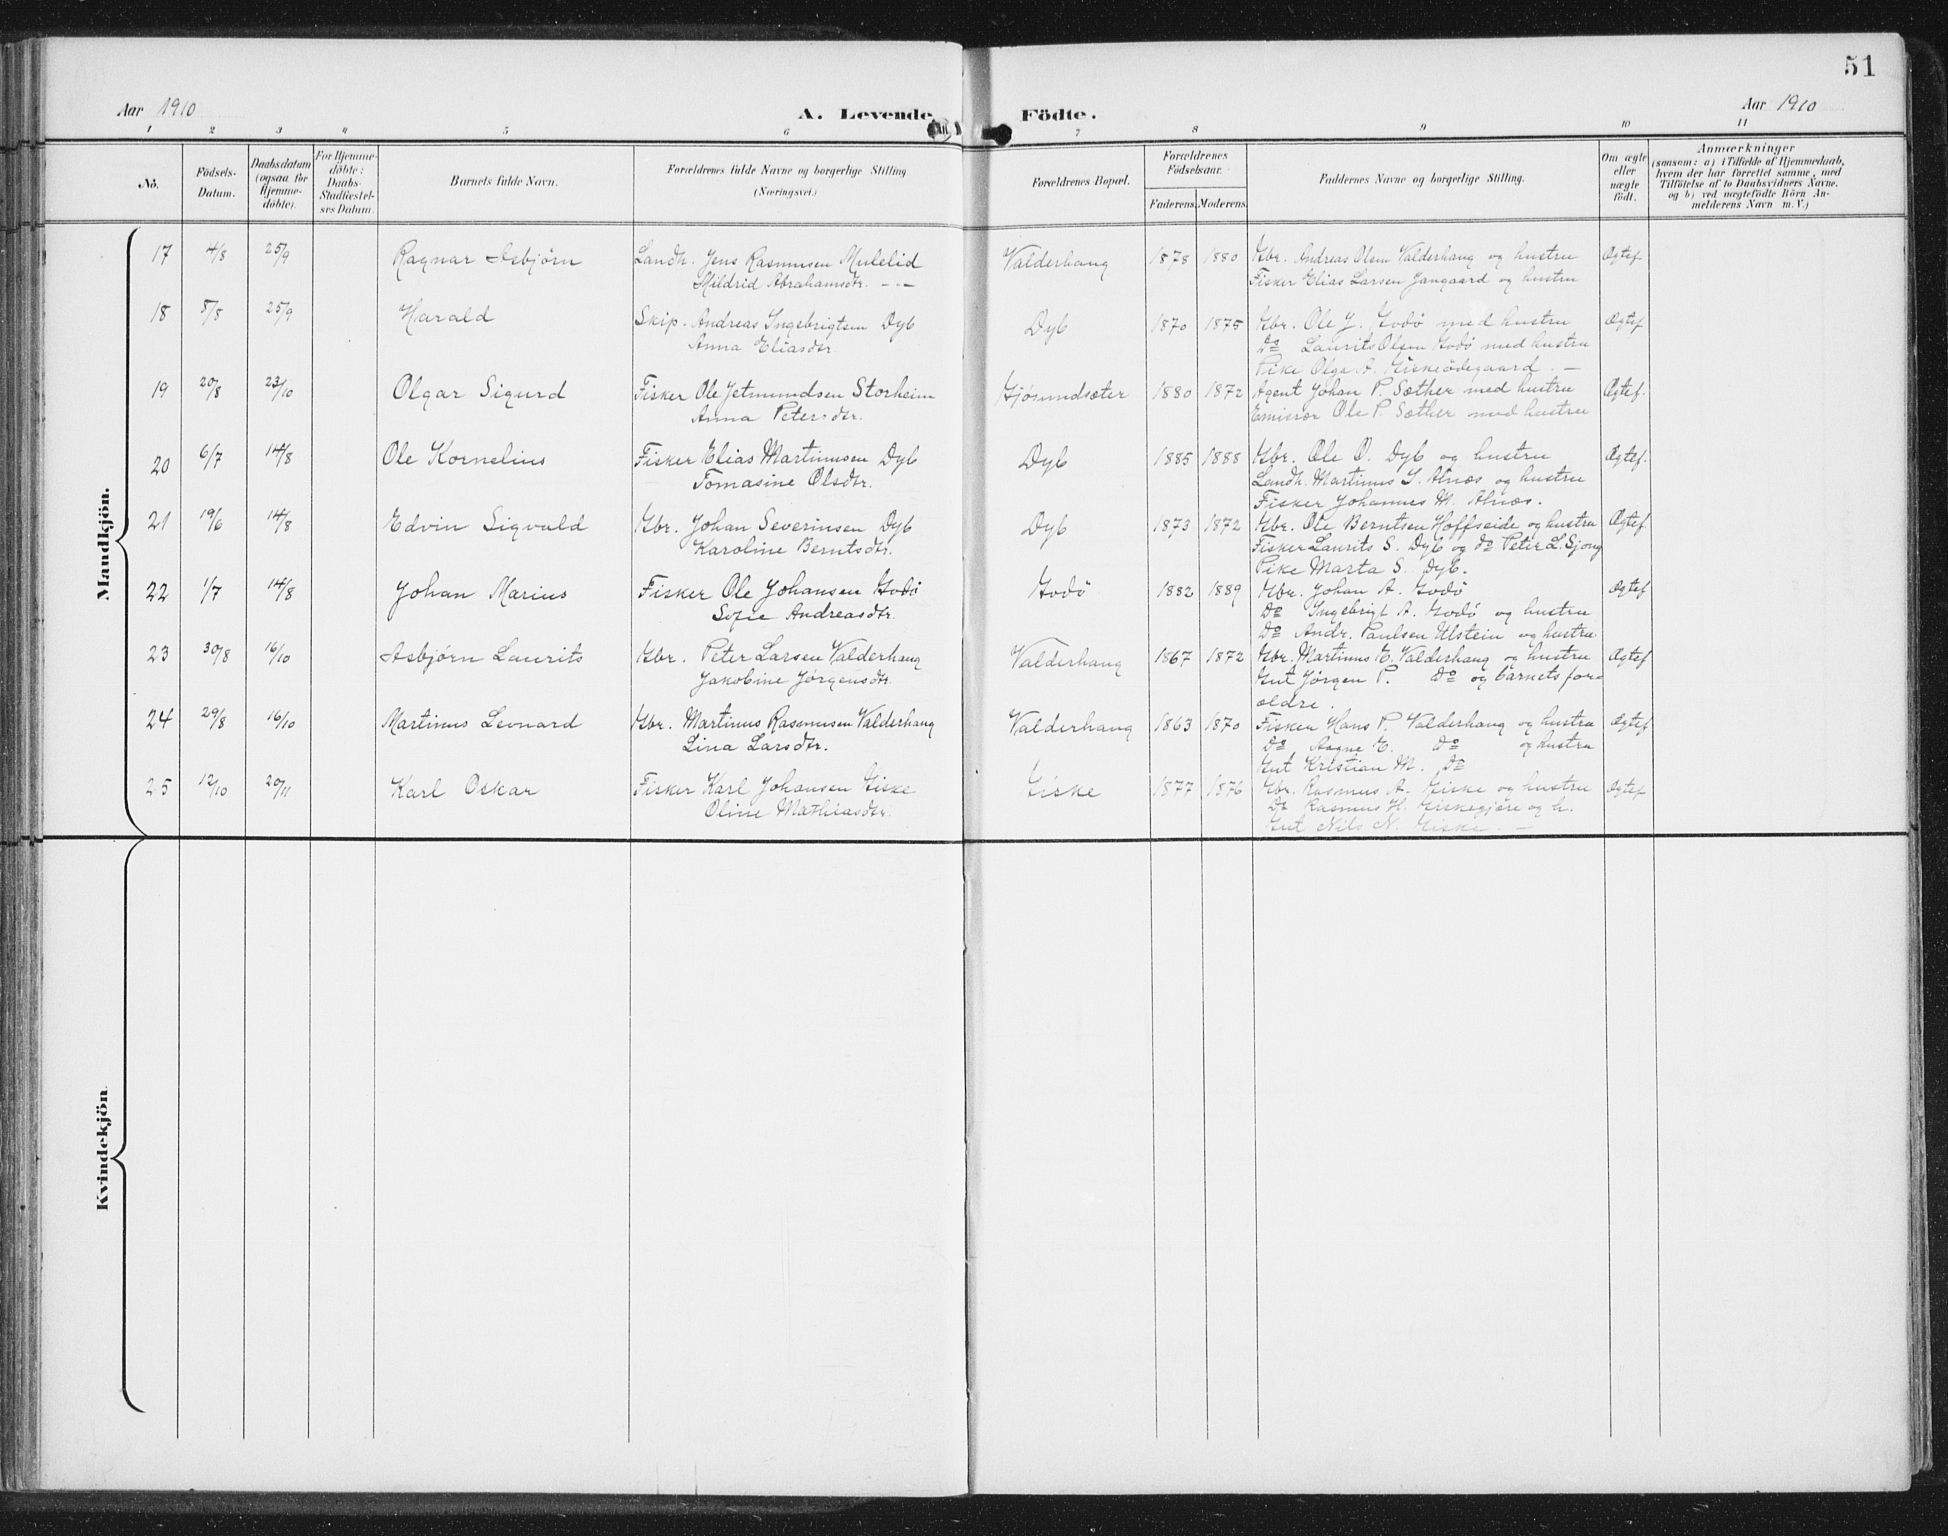 51
Aar 1910 A. Levende Födte. Aar 1910
1 2 3 4 5 6 7 8 9 10 11
No. Födsels-Datum. Daabsdatum (ogsaa for Hjemme-döbte). For Hjemme-döbte: Daabs-Stadfæstel-ses Datum. Barnets fulde Navn. Forældrenes fulde Navne og borgerlige Stilling (Næringsvei.) Forældrenes Bopæl. Forældrenes Födselsaar. Faderens. Moderens. Faddernes Navne og borgerlige Stilling. Om ægte eller uægte födt. Anmærkninger (saasom: a) i Tilfælde af Hjemmedaab, hvem der har forrettet samme, med Tilföielse af to Daabsvidners Navne, og b) ved uægtefödte Börn An-melderens Navn m. V.)
Mandkjön.
17 4/8 25/9 Ragnar Asbjørn Landh. Jens Rasmussen Mulelid Valderhaug 1878 1880 Gbr. Andreas Olsen Valderhaug og hustru Ægtef.
Mildrid Abrahamsdtr. -"- Fisker Elias Larsen Jangaard og hustru
18 5/8 25/9 Harald Skip. Andreas Ingebrigtsen Dyb Dyb 1870 1875 Gbr. Ole J. Godø med hustru Ægtef
Anna Eliasdtr. Do Laurits Olsen Godø med hustru
Pike Olga A. Giskeødegaard. -
19 20/8 23/10 Olgar Sigurd Fisker Ole Jetmundsen Storheim Gjøsundsæter 1880 1872 Agent Johan P. Sæther med hustru Ægtef.
Anna Petersdtr. Emissær Ole P. Sæther med hustru
20 6/7 14/8 Ole Kornelius Fisker Elias Martinusen Dyb Dyb 1885 1888 Gbr. Ole O. Dyb og hustru Ægtef.
Tomasine Olsdtr. Landh. Martinus I. Alnæs og hustru
Fisker Johannes M. Alnæs.
21 19/6 14/8 Edvin Sigvald Gbr. Johan Severinsen Dyb Dyb 1873 1872 Gbr. Ole Berntsen Hoffseide og hustru Ægtef.
Karoline Berntsdtr. Fisker Laurits S. Dyb og do Peter L. Sjong
Pike Marta S. Dyb.
22 1/7 14/8 Johan Marius Fisker Ole Johansen Godø Godø 1882 1889 Gbr. Johan A. Godø Ægtef
Sofie Andreasdtr. Do Ingebrigt A. Godø og hustru
Do Andr. Paulsen Ulstein og hustru
23 30/8 16/10 Asbjørn Laurits Gbr. Peter Larsen Valderhaug Valderhaug 1867 1872 Gbr. Martinus E. Valderhaug og hustru Ægtef
Jakobine Jørgensdtr. Gut Jørgen P. Do og barnets for-
ældre.
24 29/8 16/10 Martinus Leonard Gbr. Martinus Rasmusen Valderhaug Valderhaug 1863 1870 Fisker Hans P. Valderhaug og hustru Ægtef
Lina Larsdtr. Do Aagne E. Do og hustru
Gut Kristian M. Do
25 12/10 20/11 Karl Oskar Fisker Karl Johansen Giske Giske 1877 1876 Gbr. Rasmus A. Giske og hustru Ægtef
Oline Mathiasdtr. Do Rasmus H. Giskegjøre og h.
Gut Nils N. Giske. -
Kvindekjön.